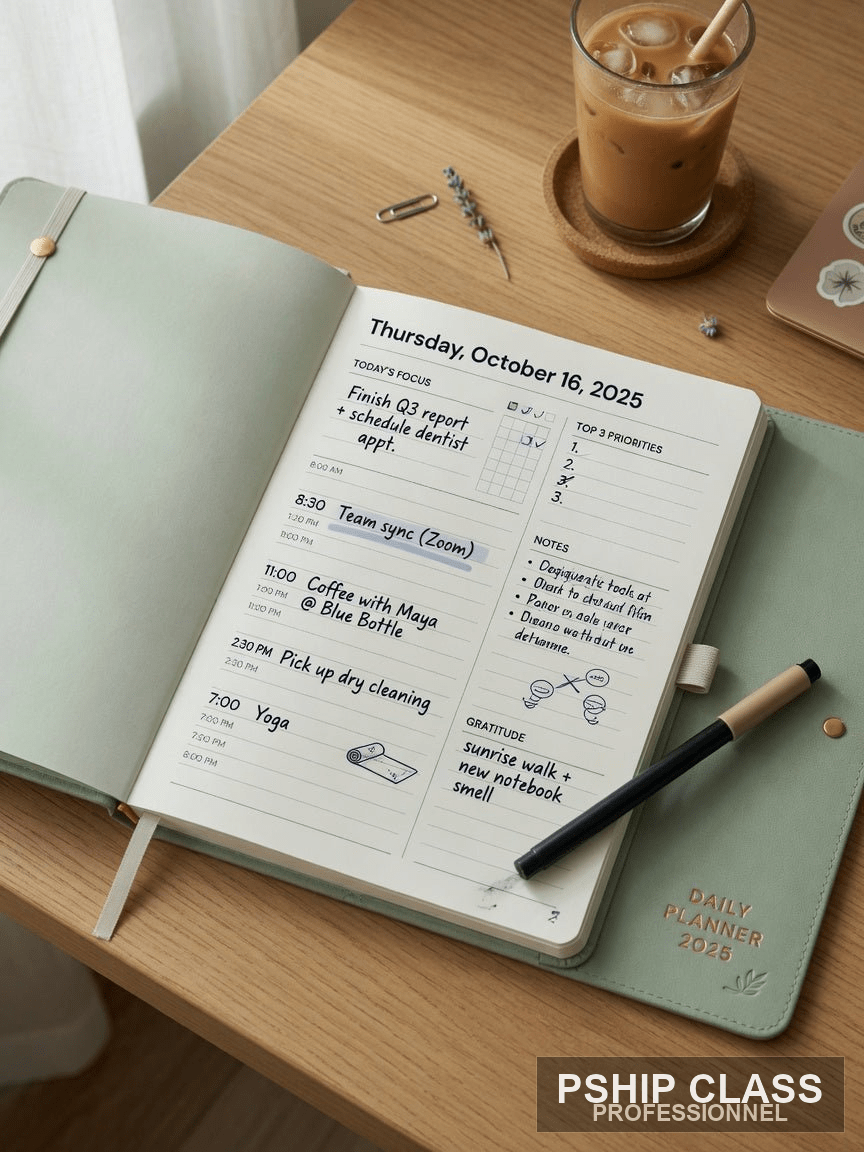 Thursday, October 16, 2025
TODAY'S FOCUS
Finish Q3 report
+ schedule dentist
appt.
8:00 AM
8:30 Team sync (Zoom)
1:20 PM
8:00 PM
11:00 Coffee with Maya
@ Blue Bottle
1:00 PM
11:20 PM
2:30 PM Pick up dry cleaning
2:30 PM
7:00 Yoga
7:00 PM
7:30 PM
8:00 PM
TOP 3 PRIORITIES
1.
2.
3.
3.
NOTES
GRATITUDE
sunrise walk +
new notebook
smell
DAILY
PLANNER
2025
PSHIP CLASS
PROFESSIONNEL